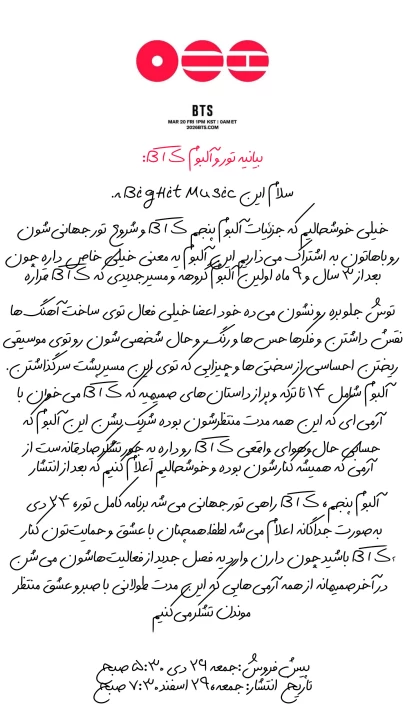 BTS
MAR 20 FRI 1PM KST | 0AM ET
2026BTS.COM
بیانیه تور و آلبوم BTS:
سلام این BigHit Music ـه.
خیلی خوشحالیم که جزئیات آلبوم پنجم BTS و شروع تور جهانی شون
رو باهاتون به اشتراک می‌ذاریم این آلبوم یه معنی خیلی خاص داره چون
بعد از ۳ سال و ۹ ماه اولین آلبوم گروهه و مسیر جدیدی که BTS قراره
توش جلو بره رو نشون می‌ده خود اعضا خیلی فعال توی ساخت آهنگ ها
نقش داشتن و فکرها حس ها و رنگ و حال شخصی شون رو توی موسیقی
ریختن احساسی از سختی‌ها و چیزایی که توی این مسیر پشت سر گذاشتن.
آلبوم شامل ۱۴ تا ترکه و پر از داستان های صمیمیه که BTS می‌خوان با
آرمی ای که این همه مدت منتظرشون بوده شریک بشن این آلبوم که
حسابی حال و هوای واقعی BTS رو داره یه جور تشکر صادقانه‌ست از
آرمی که همیشه کنارشون بوده و خوشحالیم اعلام کنیم که بعد از انتشار
آلبوم پنجم، BTS راهی تور جهانی می‌شه برنامه کامل تور، ۲۴ دی
به صورت جداگانه اعلام می‌شه لطفا همچنان با عشق و حمایت‌تون کنار
BTS باشید چون دارن وارد یه فصل جدید از فعالیت‌هاشون می‌شن،
در آخر صمیمانه از همه آرمی هایی که این مدت طولانی با صبر و عشق منتظر
موندن تشکر می‌کنیم
پیش فروش: جمعه ۲۹ دی ۵:۳۰ صبح
تاریخ انتشار: جمعه، ۲۹ اسفند ۷:۳۰ صبح